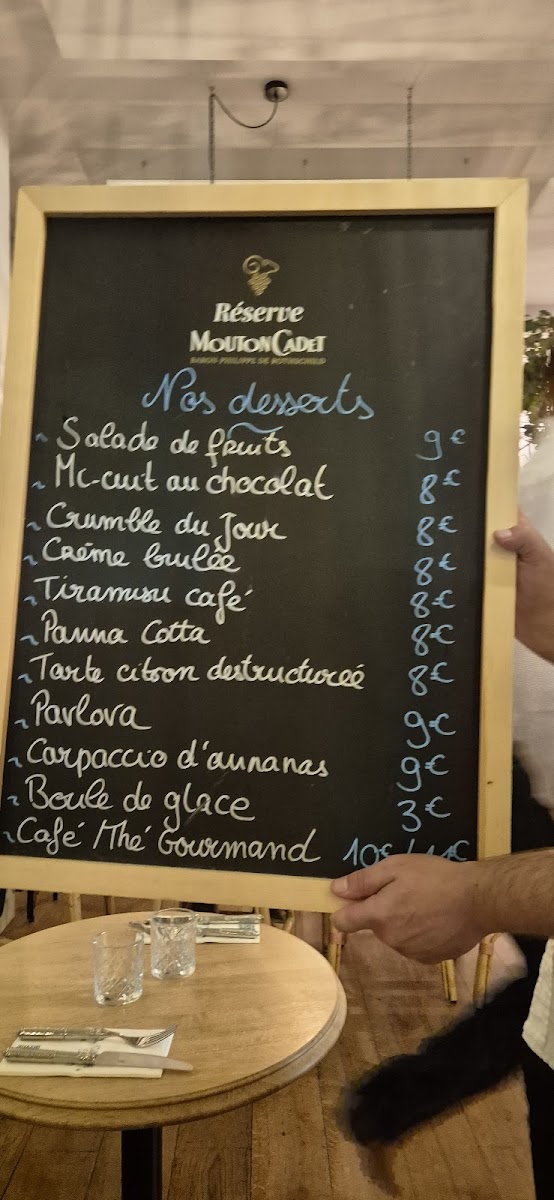 Réserve
MOUTON CADET
BARON PHILIPPE DE ROTHSCHILD
Nos desserts
~ Salade de fruits 9€
~ Mi-cuit au chocolat 8€
~ Crumble du Jour 8€
~ Créme brulée 8€
~ Tiramisu café 8€
~ Panna Cotta 8€
~ Tarte citron destructureé 8€
~ Pavlova 9€
~ Carpaccio d'aunanas 9€
~ Boule de glace 3€
~ Café /Thé Gourmand 10€ / 11€